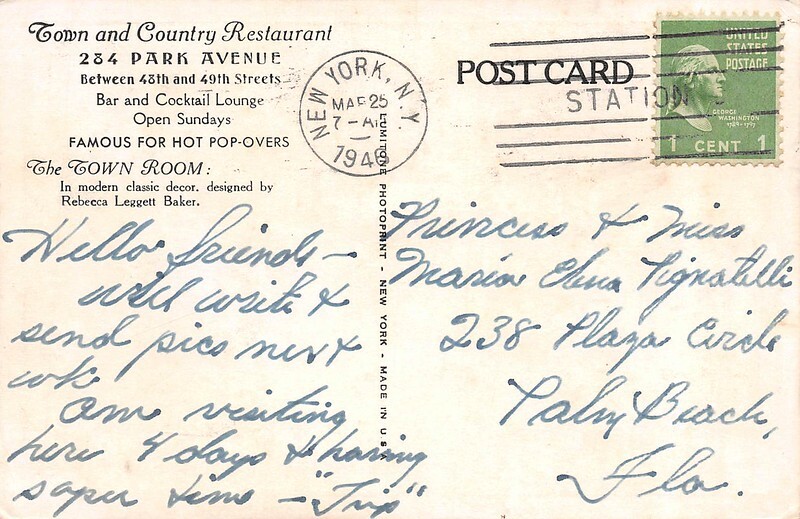 Town and Country Restaurant
284 PARK AVENUE
Between 48th and 49th Streets
Bar and Cocktail Lounge
Open Sundays
FAMOUS FOR HOT POP-OVERS
The TOWN ROOM:
In modern classic decor. designed by
Rebecca Leggett Baker.
Hello friends -
will write &
send pics next
wk
am visiting
here 4 days & having
super time - "Trip"
NEW YORK, N.Y.
MAR 25
7 - AM
1946
LUMITONE PHOTOPRINT - NEW YORK - MADE IN U S A
POST CARD
STATION
UNITED
STATES
POSTAGE
GEORGE
WASHINGTON
1789-1797
1 CENT 1
Princess & Miss
Maria Elena Pignatelli
238 Plaza Circle
Palm Beach,
Fla.